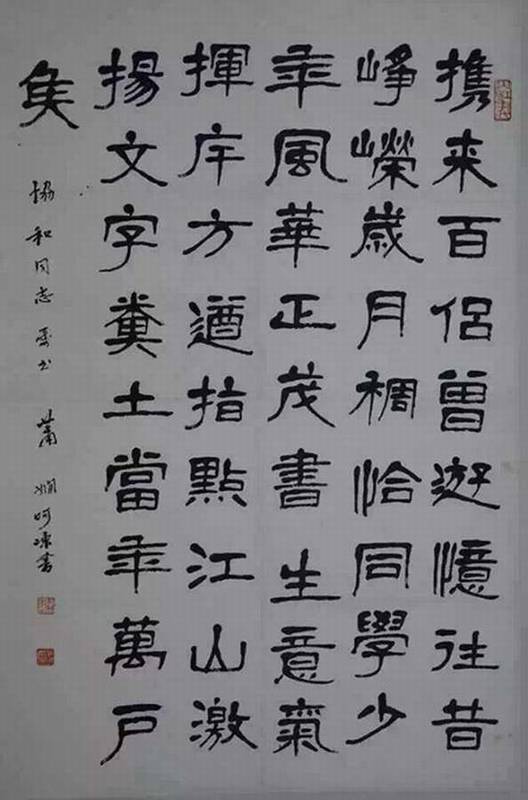 携来百侣曾遊憶往昔
崢嶸歲月稠恰同學少
年風華正茂書生意氣
揮斥方遒指點江山激
揚文字糞土當年萬户
侯
協和同志
蕭嫻呵凍書